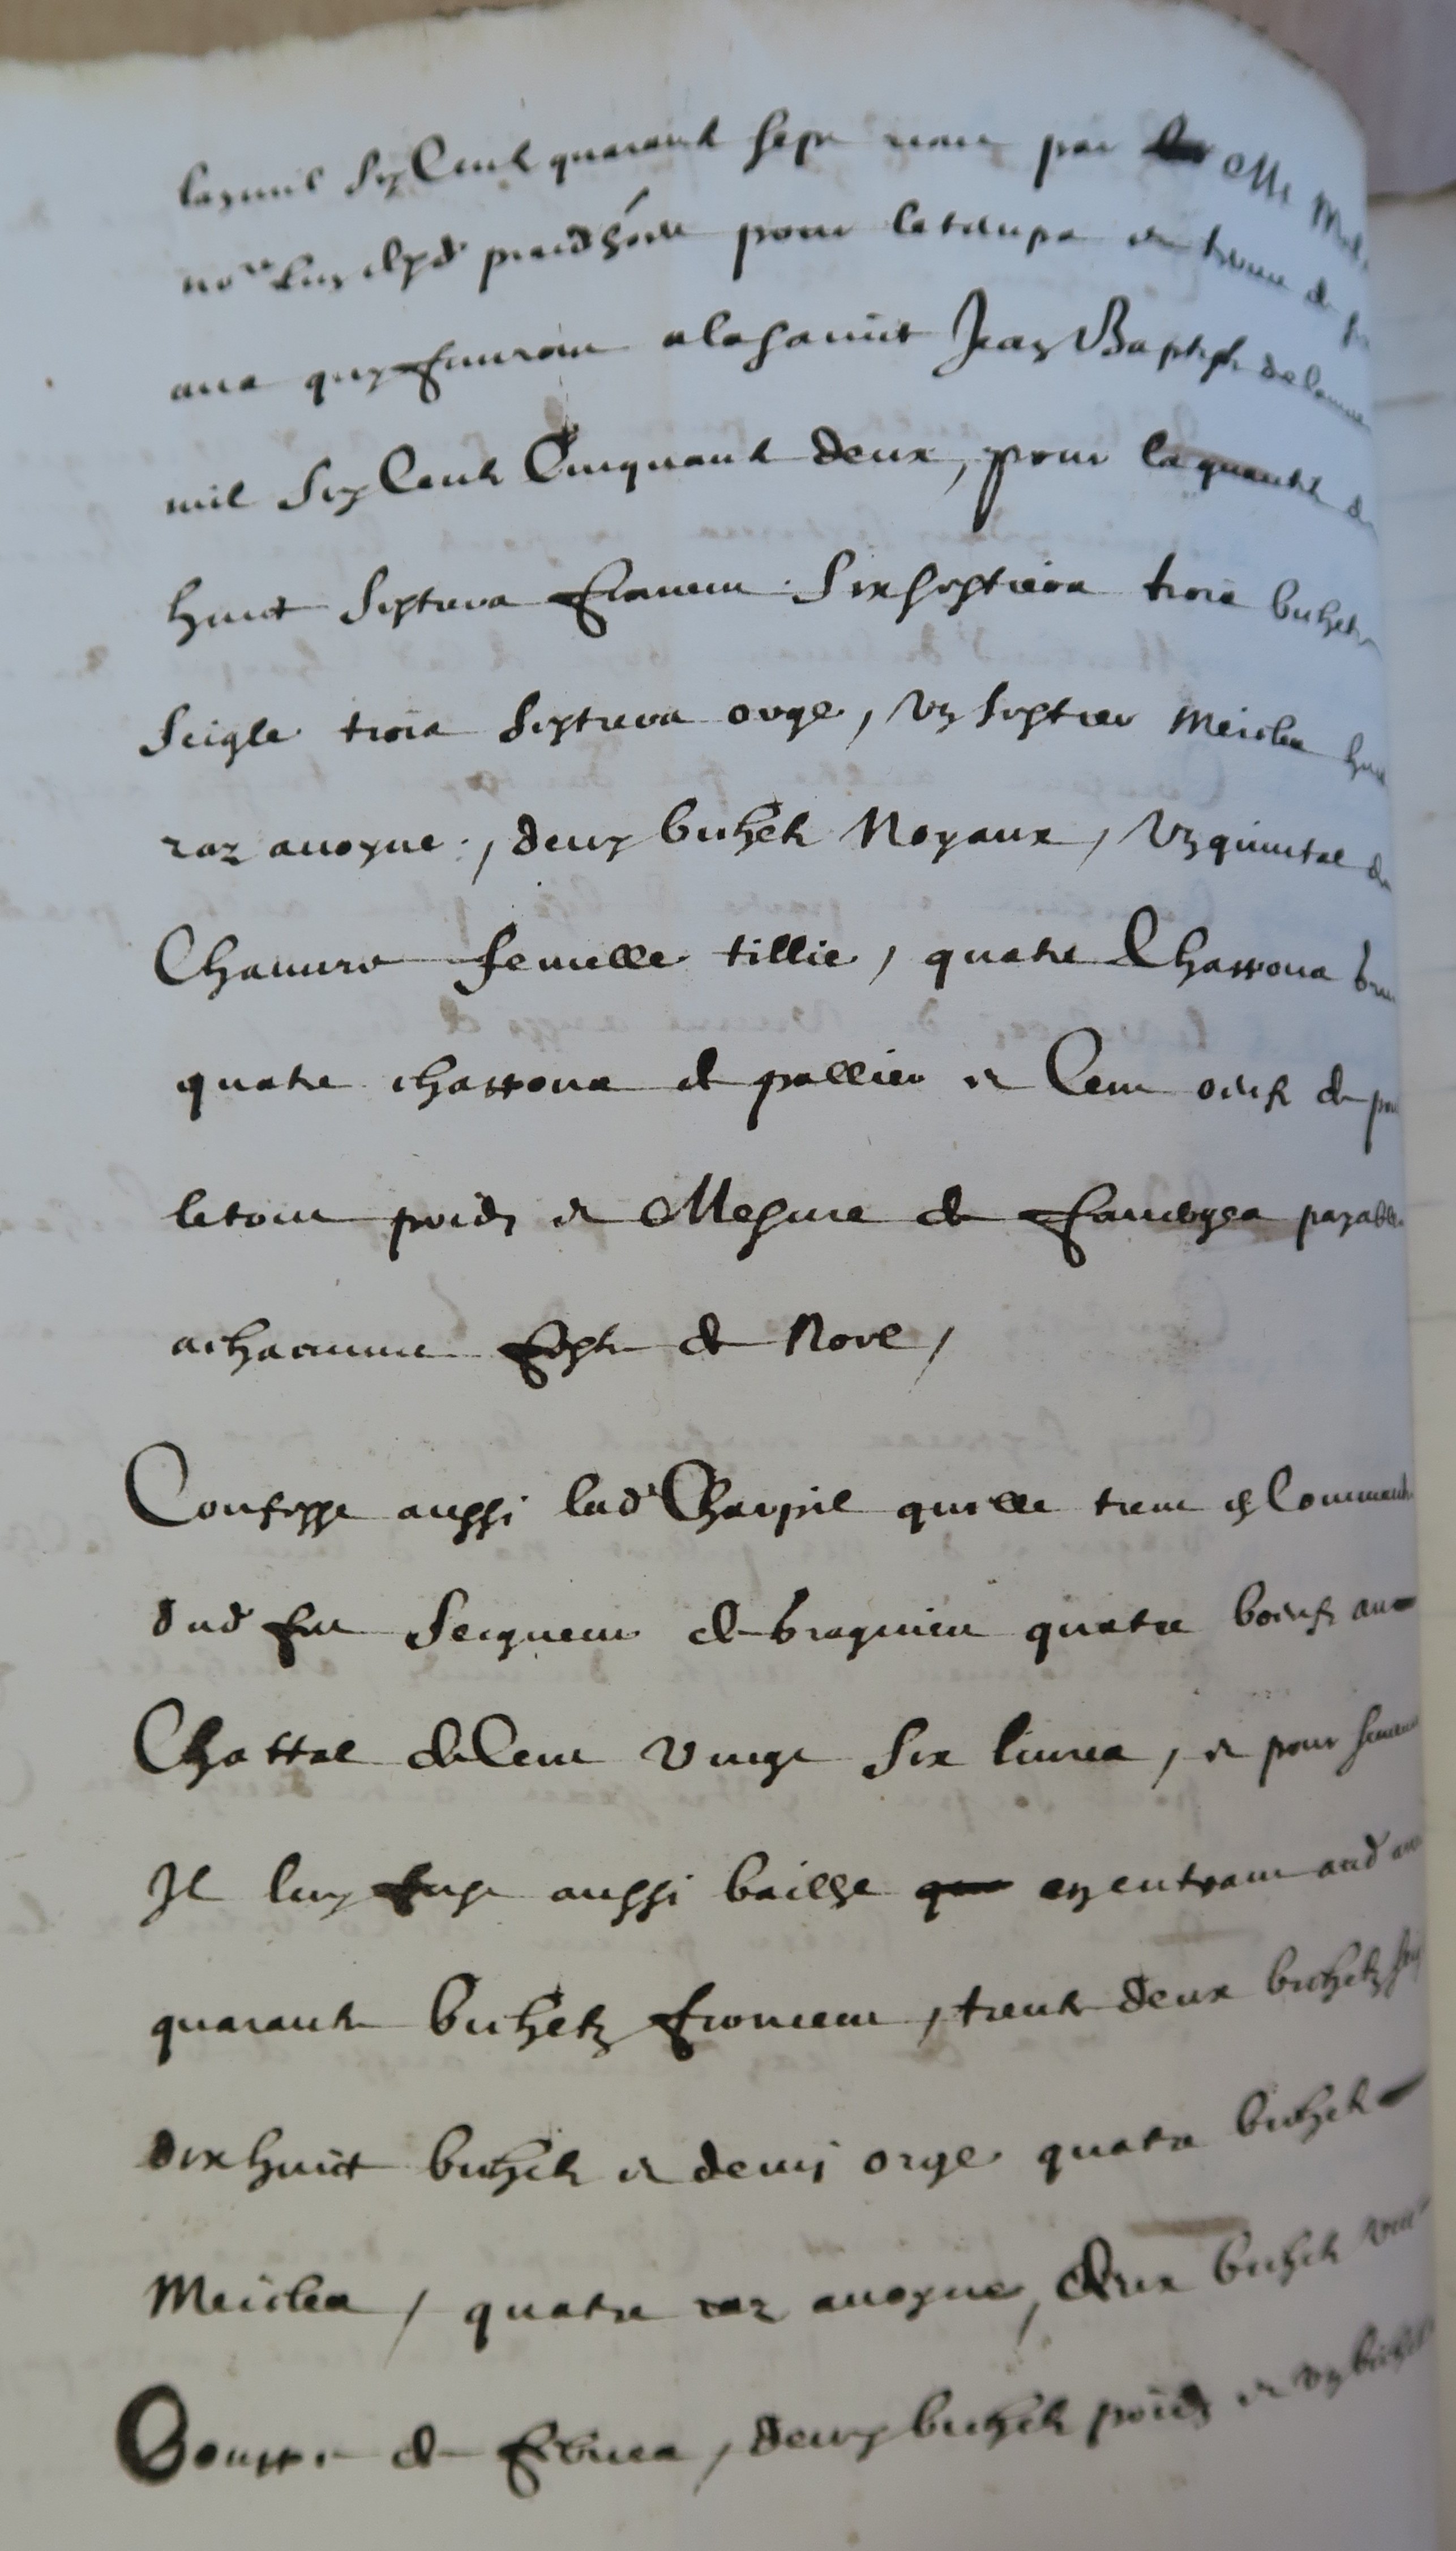 lan mil six Cent quarante sept receu par Me
no.re luy cy d. pour le temps et terme de
ans quy finiront a la sainct Jean Baptiste de lannee
mil six Cent Cinquante deux, pour la quantite de
huict septiers froment six septiers trois bichetz
seigle trois septiers orge, vn septier Meicles
raz auoyne, deux bichetz Noyaux, vn quintal de
Chanure femelle tillie, quatre Chassons
quatre chassons de pallier et Cent oeufs de
le tout poidz et Mesure de Fauerges payables
a chacune feste de Noel,
Confesse aussi lad. Charpil quelle tient en Commande
dud feu Seigneur de bragnieu quatre boeufs au
Chattal de Cent vingt six liures, et pour
Il luy fust aussi baille en entrant aud
quarante bichetz froment, trente deux bichetz
dix huict bichetz et demi orge quatre bichetz
Meicles, quatre raz auoyne, deux bichetz
Gousse de febues, deux bichetz poidz et vn bichet